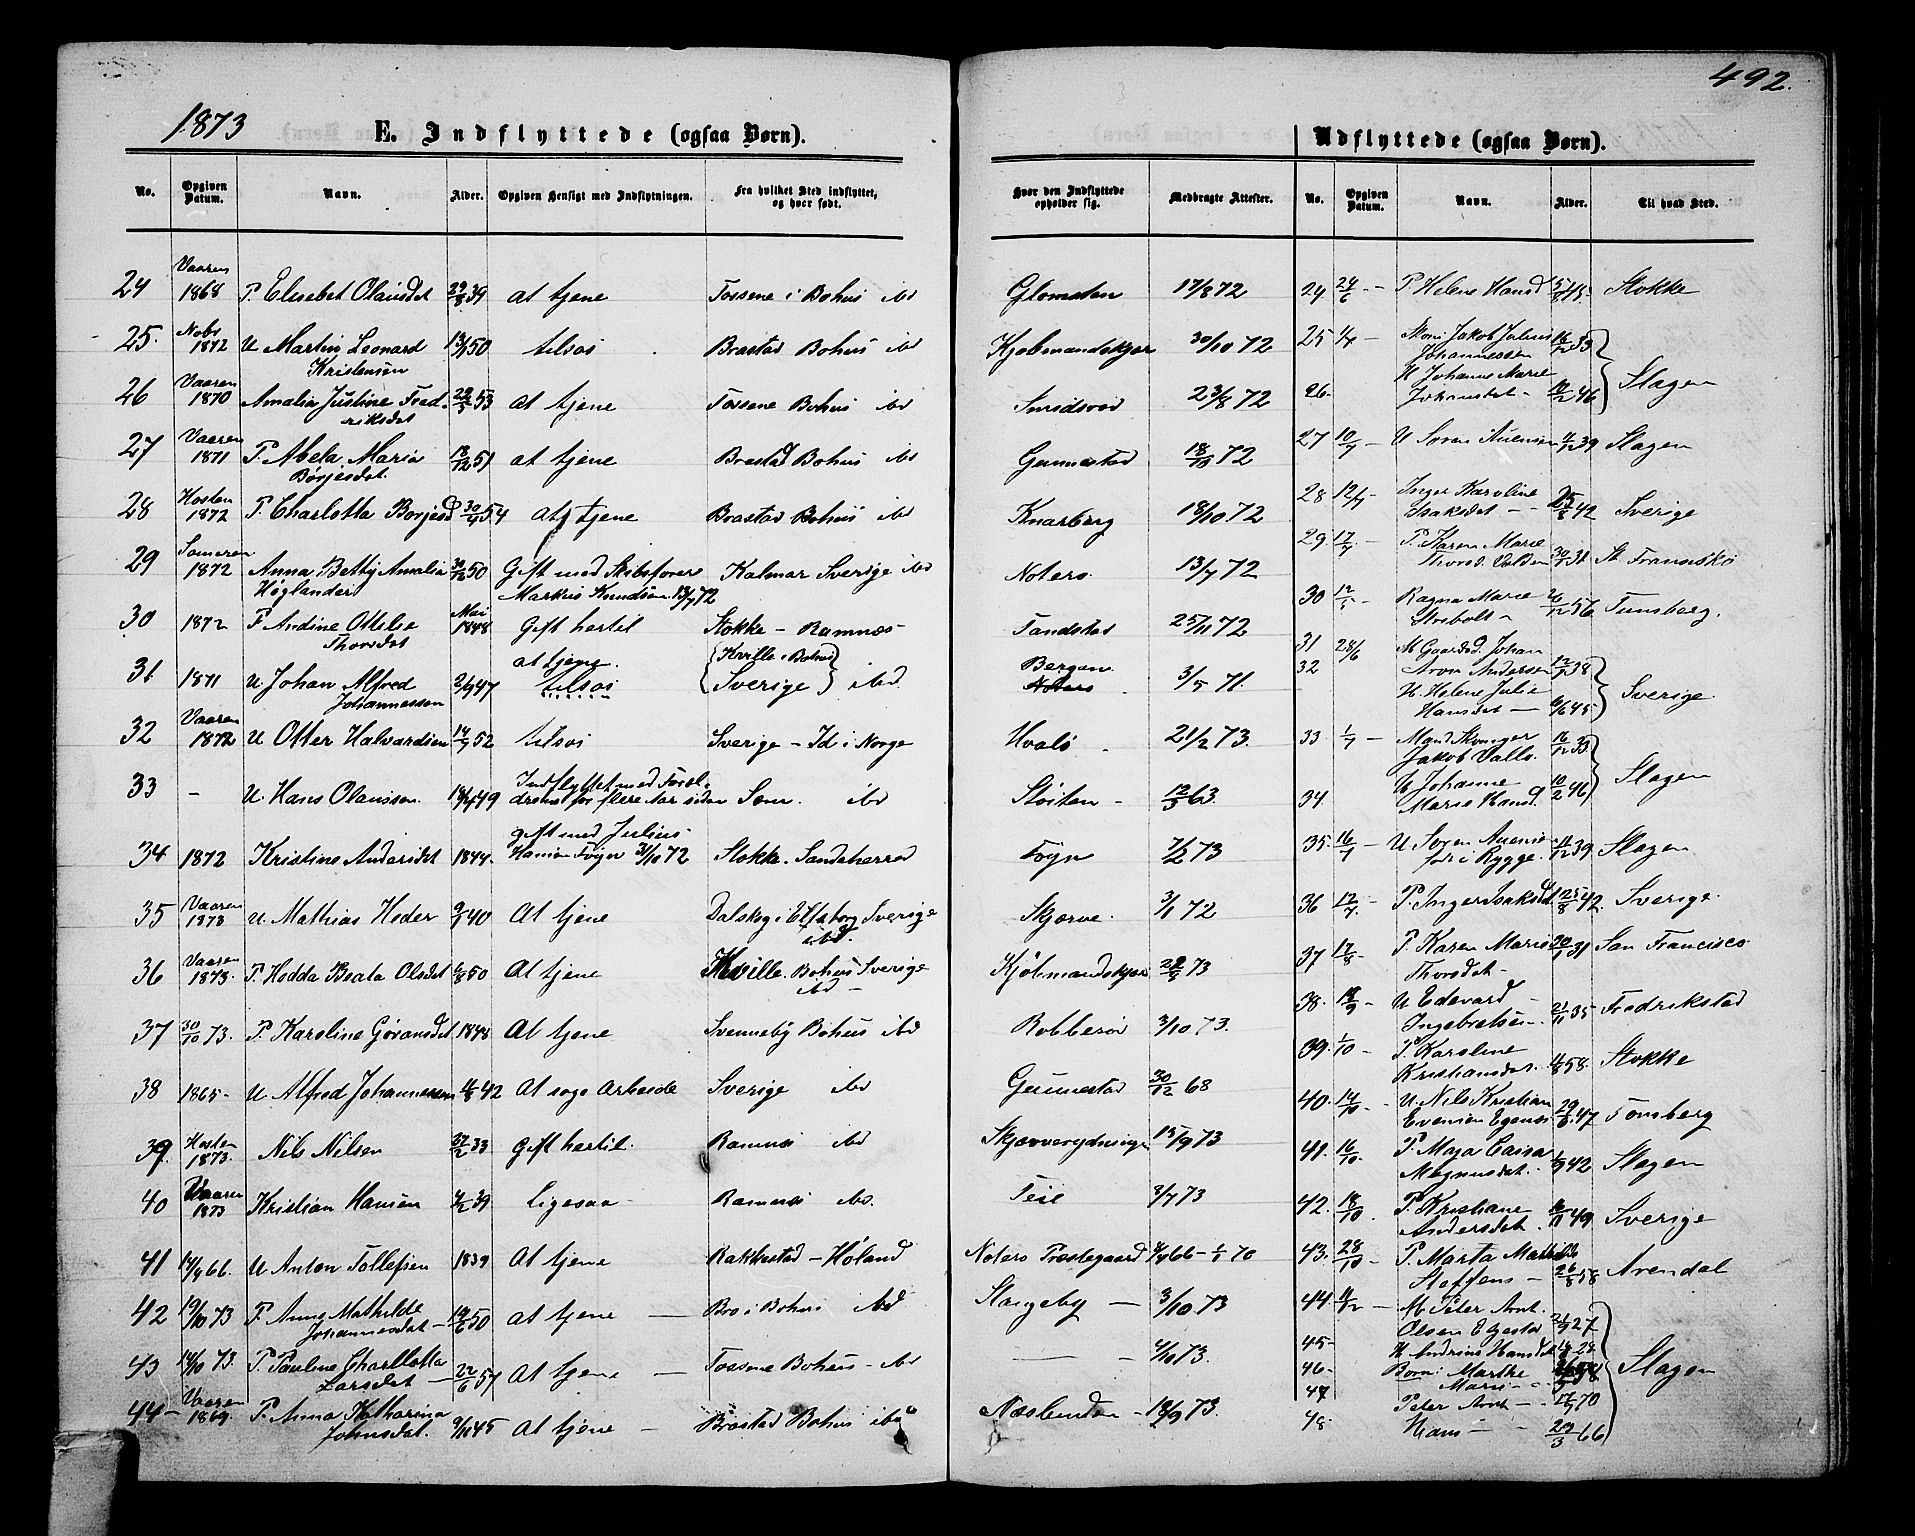 492.
1873
E. Indflyttede (ogsaa Børn).
Udflyttede (ogsaa Børn).
No. Opgiven Datum. Navn. Alder. Opgiven Hensigt med Indflytningen. Fra hvilket Sted indflyttet, og hvor født. Hvor den Indflyttede opholder sig. Medbragte Attester.
No. Opgiven Datum. Navn. Alder. Til hvad Sted.
24 Vaaren 1868 P. Elisebet Olausdet 29/8 39 at tjene Tossene i Bohus ibd Glomsten 17/8 72
25. Nobr 1872 U Martin Leonard Kristensen 50 tilsøs Brastad Bohus ibd Kjøbmandskjær 30/10 72
26 Vaaren 1870 Amalia Justine Fredriksdet 53 at tjene Tossene Bohus ibd Smidsrød 23/8 72
27 Vaaren 1871 P. Abela Maria Børjesdet. 51 at tjene Brastad Bohus ibd Gunnestad 18/10 72
28 Høsten 1872 P. Charlotta Borjesd 30/9 54 at tjene Brastad Bohus ibd Knarberg 18/10 72
29 Someren 1872 Anna Betty Amalia Høglander 30/12 50 Gift med Skibsfører Markus Knudsen 13/7 72 Kalmar Sverige ibd Noterø 13/7 72
30 1872 F Andine Ottilie Thorsdet Mai 1848 Gift hertil Stokke - Ramnæs - Tandstad 25/11 72
31 1871 U Johan Alfred Johannessen 2/9 47 at tjene. tilsøs Kville i Bohus Sverige ibd. Bergan Noterø 3/5 71.
32 Vaaren 1872 U Otter Halvardsen 14/9 52 tilsøs Sverige - Id i Norge Hvalø 21/2 73.
33 - U. Hans Olaussen. 49 Indflyttet med Forældrene for flere Aar siden Sem. ibd Støiten - 12/3 63.
34 1872 Kristine Andersdet 1844. gift med Julius Hansen Føyn 3/10 72 Stokke. Sandeherred Føyn 7/2 73
35 Vaaren 1873 U. Mathias Heder 9/1 40 At tjene Dalskog i Elfsborg Sverige ibd. Skjærve. 3/1 72
36 Vaaren 1873. P. Hedda Beata Olsdet 6/8 50 At tjene Kville. Bohus Sverige ibd - Kjøbmandskjær 73
37 30/10 73. P. Karoline Göransdet 1848 At tjene Svenneby Bohus ibd Robberød 3/10 73.
38 1865 - U Alfred Johannessen 42 At søge Arbeide Sverige ibd Gunnestad 30/12 68
39. Høsten 1873. Nils Nilsen 33 Gift hertil. Ramnæs ibd Skjærverydningen 15/9 73
40 Vaaren 1873 Kristian Hansen 4/2 39 Ligesaa - Ramnæs ibd. Teie 3/7 73
41 14/4 66. U Anton Tollefsen 1839 At tjene Rakkestad - Høland Noterø Præstegaard 4/4 66 - 1/1 70
42 19/10 73 P. Anna Mathilde Johannesdet - 19/6 50 at tjene - Bro i Bohus ibd Stangeby - 3/10 73
43 14/10 73. P. Pauline Charllotta Larsdet - 22/6 57 At tjene - Tossene Bohus - ibd - 4/10 73.
44 - Vaaren 1869. P. Anna Katharina Johnsdet. 9/11 45 At tjene - Brastad Bohus ibd Næsbunden - 18/9 73.
24 24/6 - P Helene Hansd 45 - Stokke
25 Skom. Jakob Julius Johannessen 16/12 33
26. H Johanne Marie Johansdet - 10/2 46 Slagen
27 10/7 - U Søren Auensen 11/12 39 Slagen
28 12/7 - Inger Karoline Isaksdet - 25/8 42 Sverige
29. 17/7 - P. Karen Marie Thorsd. Valden 30/7 31 St Fransisko
30 12/5 - Ragna Marie Stribolt - 26/12 56 Tunsberg.
31 28/6 M Gaardsd. Johan Aron Andersen 12/7 38
32 H. Helene Julie Hansdet - 9/6 45 Sverige.
33. 1/7 - Mand Skomager Jakob Vallø. 16/12 33
34. H Johanne Marie Hansd. 10/2 46 Slagen
35. 16/7 - U. Søren Auensen fød i Rygge. 11/12 39 Slagen
36 12/7. - P. Inger Isaksdt 25/8 42. Sverige.
37 17/8 - P. Karen Marie Thorsdet - 30/7 31 San Francisco
38. 18/9 - U Edevard Ingebretsen - 21/11 35 Fredrikstad
39. 1/10 - P. Karoline Kristiansdet 4/8 58. Stokke
40. 14/10 - U. Nils Kristian Evensen Egenæs 29/8 47 Tønsberg
41. 16/10. P. Maja Caisa Magnusdet. 1/9 42 Slagen
42. 18/10. P. Kristiane Andersdet 49 Sverige
43. 28/10 - P. Marta Mathilde Staffens - 26/8 58 Arendal
44. - M. Peter Arnt. Olsen Elgestad 27
45 - H. Andrine Hansdet
46 - Børn: Marthe Marie - 58
47 Peter Arnt - 17/9 70
48 Hans - 29/3 66 Slagen